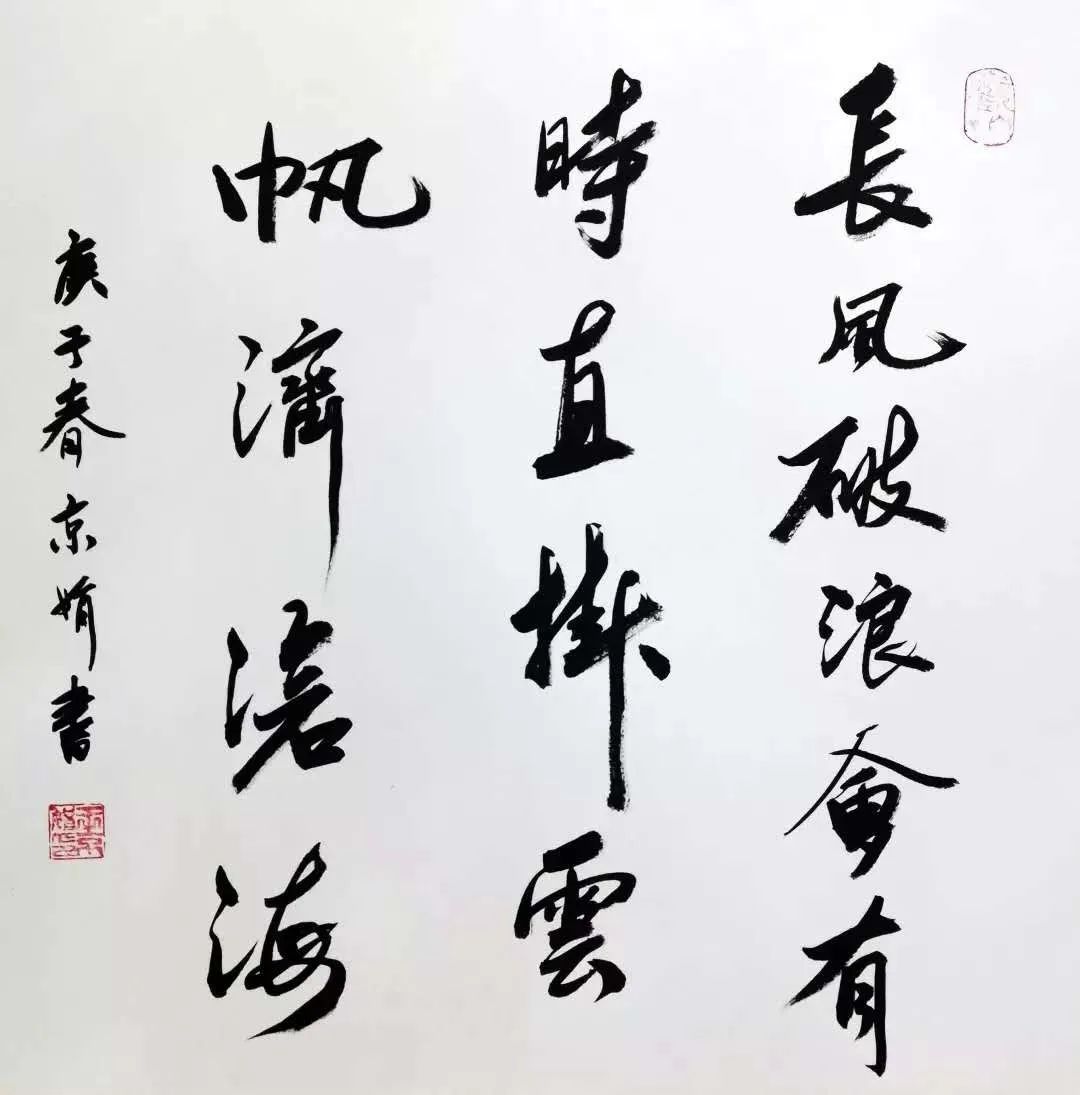 長風破浪會有
時直掛雲
帆濟滄海
庚子春京娟書